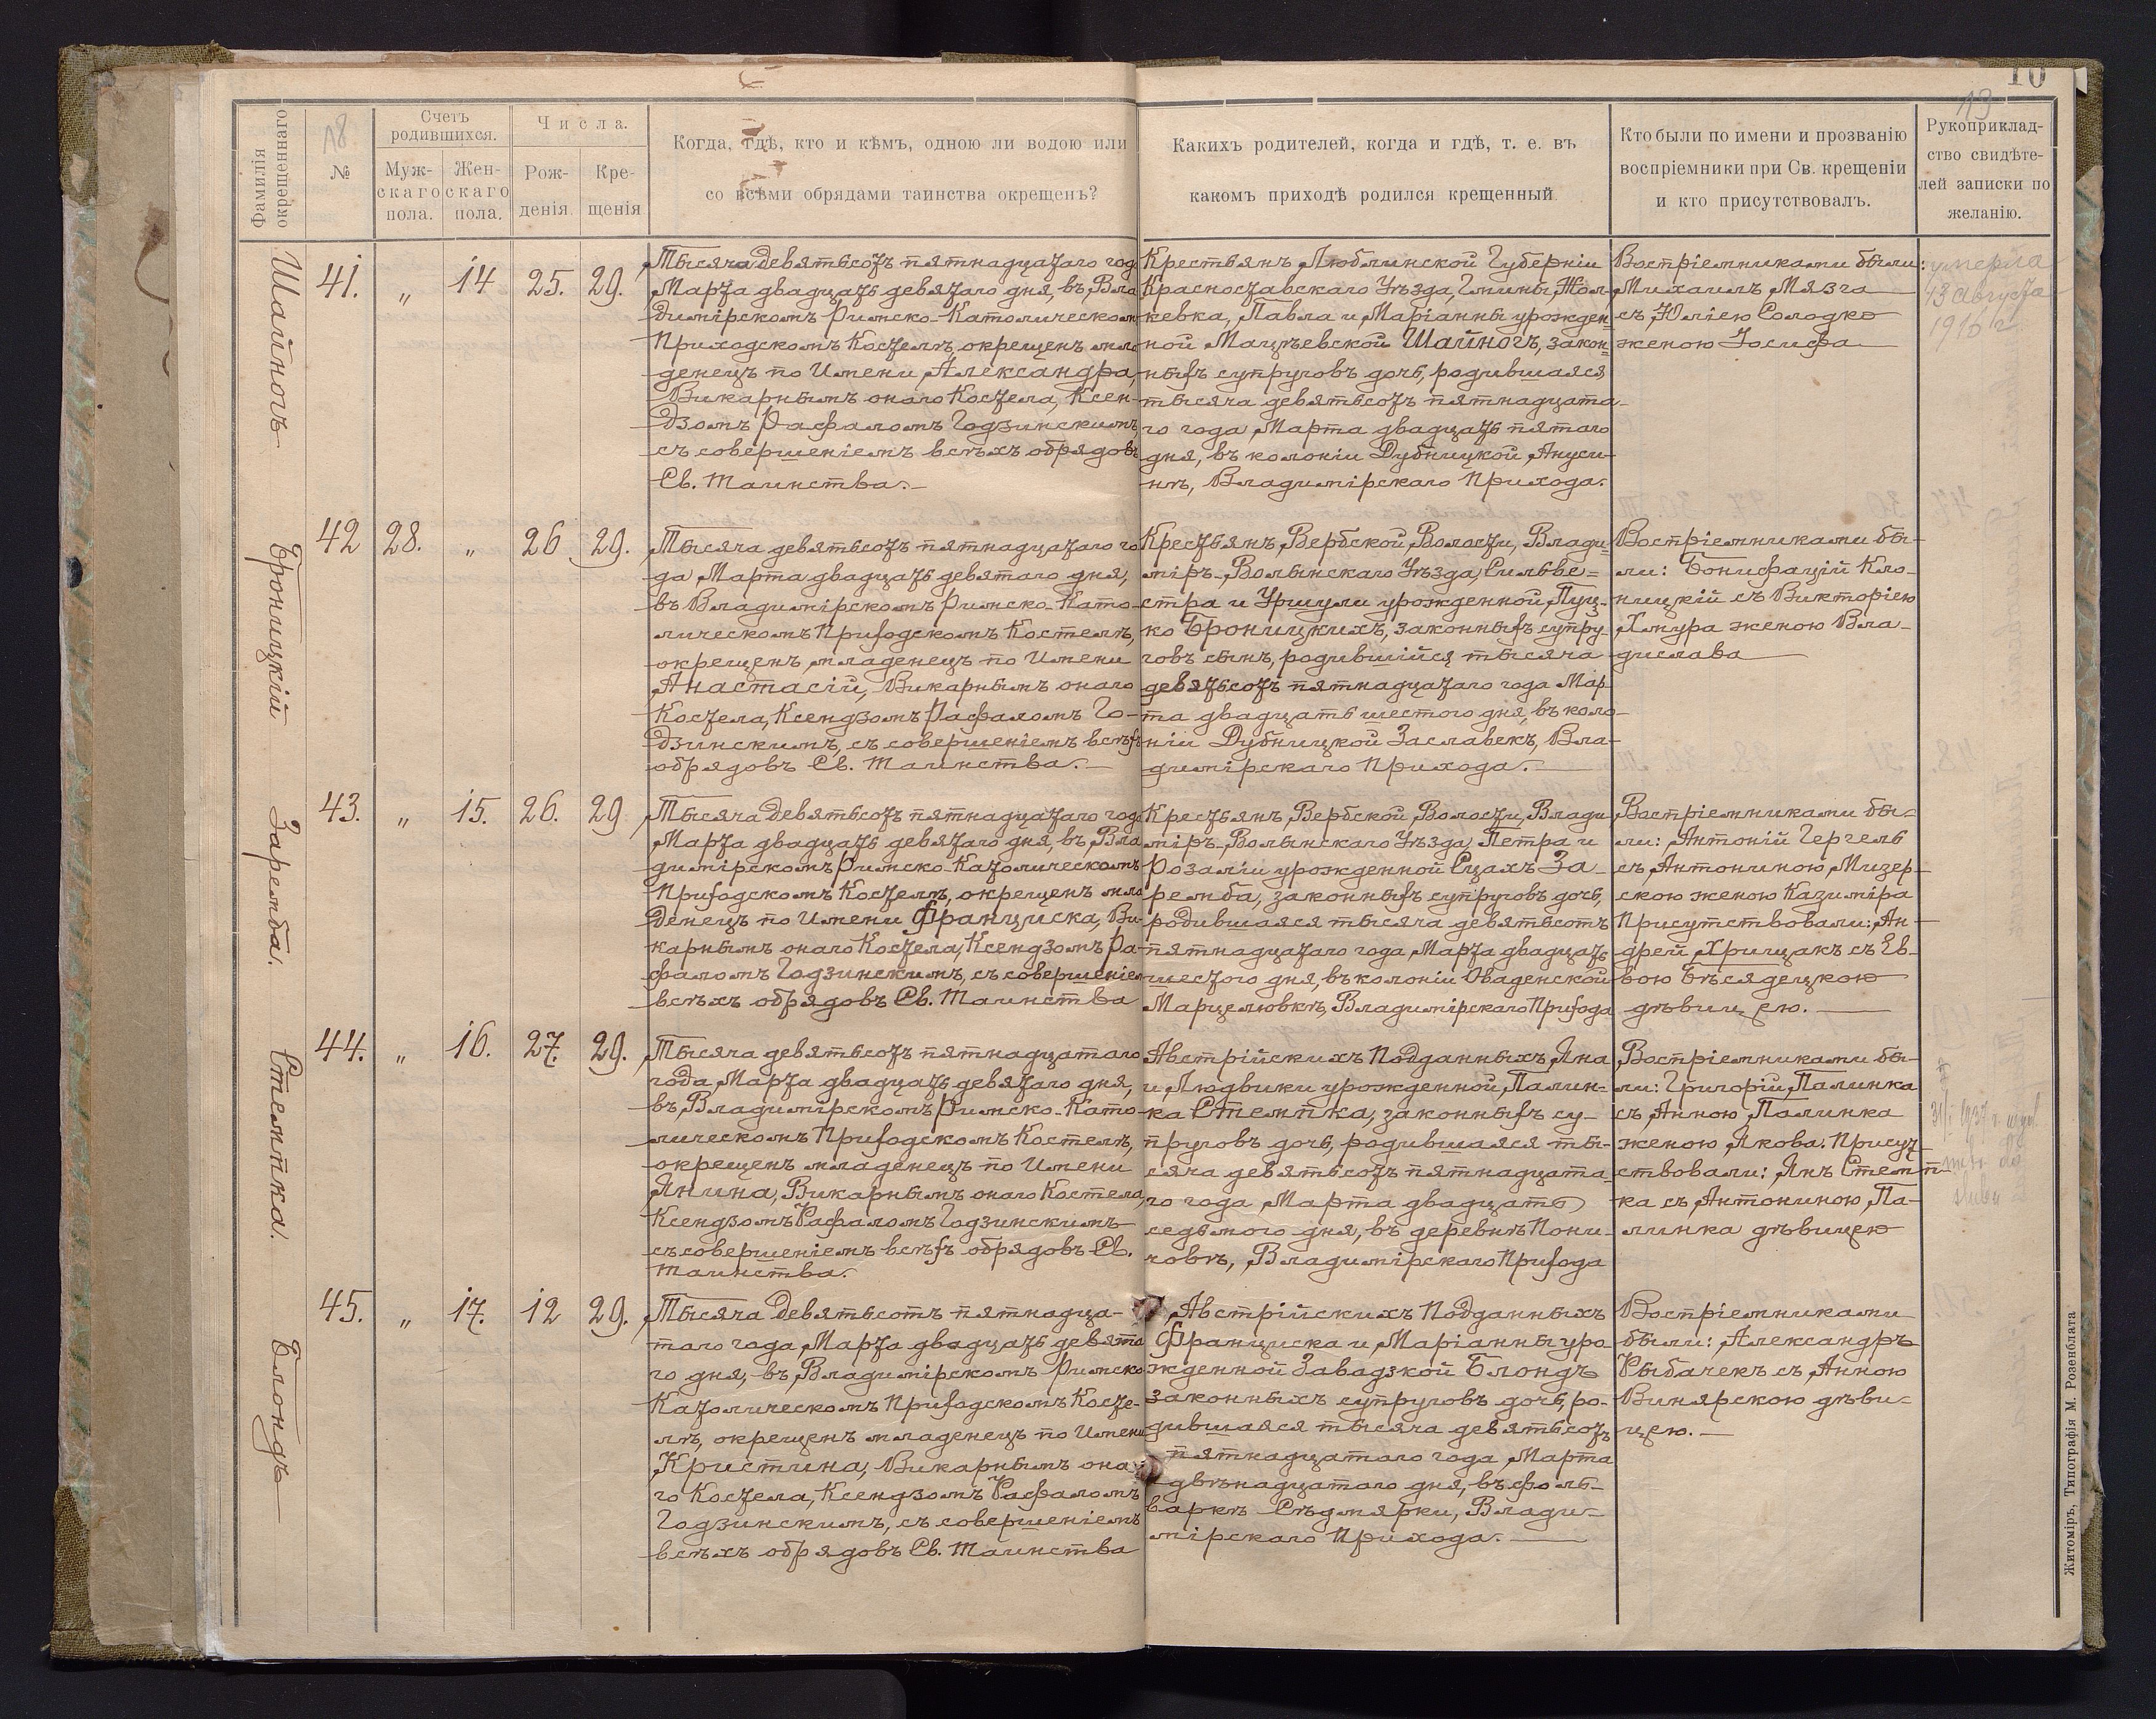 10
18
13
Фамилія окрещеннаго
№
Счетъ родившихся.
Муж-скаго пола.
Жен-скаго пола.
Числа.
Рож-денія
Кре-щенія
Когда, гдѣ, кто и кѣмъ, одною ли водою или
со всѣми обрядами таинства окрещенъ?
Какихъ родителей, когда и гдѣ, т. е. въ
какомъ приходѣ родился крещенный
Кто были по имени и прозванію
воспріемники при Св. крещеніи
и кто присутствовалъ.
Рукоприклад-
ство свидѣте-
лей записки по
желанію.
Шайногъ
41. „ 14 25. 29.
Тысяча девятьсотъ пятнадцатаго года
Марта двадцать девятаго дня, въ Вла
димірскомъ Римско-Католическомъ
Приходскомъ Костелѣ, окрещенъ мла
денецъ по Имени Александра,
Викарнымъ онаго Костела, Ксен-
дзомъ Рафаломъ Годзинскимъ,
съ совершеніемъ всѣхъ обрядовъ
Св. Таинства.
Крестьянъ Люблинской Губерніи
Красноставскаго Уѣзда, Гмины, Жол-
кевка, Павла и Маріанны урожден-
ной Мацѣевской Шайногъ, закон-
ныхъ супруговъ дочь, родившаяся
тысяча девятьсотъ пятнадцата-
го года Марта двадцать пятаго
дня, въ колоніи Дубницкой Ануси-
нѣ, Владимірскаго Прихода.
Воспріемниками были:
Михаилъ Мязга
съ Юліею Солодко
женою Іосифа
умерла
13 августа
1916 г.
Броницкій
42 28. „ 26 29.
Тысяча девятьсотъ пятнадцатаго го
да Марта двадцать девятаго дня,
въ Владимірскомъ Римско-Като-
лическомъ Приходскомъ Костелѣ,
окрещенъ младенецъ по Имени
Анастасій, Викарнымъ онаго
Костела, Ксендзомъ Рафаломъ Го-
дзинскимъ, съ совершеніемъ всѣхъ
обрядовъ Св. Таинства.
Крестьянъ, Вербской Волости, Влади-
міръ-Волынскаго Уѣзда, Сильве-
стра и Уршули урожденной, Пуц-
ко Броницкихъ, законныхъ супру-
говъ сынъ, родившійся тысяча
девятьсотъ пятнадцатаго года Мар
та двадцать шестого дня, въ коло-
ніи Дубницкой Заславекъ, Вла-
димірскаго Прихода.
Воспріемниками бы-
ли: Бонифацій Кло-
ницкій съ Викторіею
Хмура женою Вла-
дислава
Заремба.
43. „ 15. 26. 29
Тысяча девятьсотъ пятнадцатаго года
Марта двадцать девятаго дня, въ Вла
димірскомъ Римско-Католическомъ
Приходскомъ Костелѣ, окрещенъ мла
денецъ по Имени Франциска, Ви-
карнымъ онаго Костела, Ксендзомъ Ра-
фаломъ Годзинскимъ, съ совершеніемъ
всѣхъ обрядовъ Св. Таинства
Крестьянъ, Вербской Волости, Влади
міръ-Волынскаго Уѣзда, Петра и
Розаліи урожденной Сцахъ За-
ремба, законныхъ супруговъ дочь,
родившаяся тысяча девятьсотъ
пятнадцатаго года Марта двадцать
шестого дня, въ колоніи Оваденской
Марцелювкѣ, Владимірскаго Прихода
Воспріемниками бы-
ли: Антоній Гергель
съ Антониною Мизер-
скою женою Казиміра
Присутствовали: Ан-
дрей Хрищакъ съ Ев-
вою Бѣсядецкою
дѣвицею.
Стемпка.
44. „ 16. 27. 29.
Тысяча девятьсотъ пятнадцатаго
года Марта двадцать девятаго дня,
въ Владимірскомъ Римско-Като-
лическомъ Приходскомъ Костелѣ,
окрещенъ младенецъ по Имени
Янина, Викарнымъ онаго Костела,
Ксендзомъ Рафаломъ Годзинскимъ
съ совершеніемъ всѣхъ обрядовъ Св.
Таинства.
Австрійскихъ Подданныхъ, Яна
и Людвики урожденной, Палин-
ка Стемпка, законныхъ су-
пруговъ дочь, родившаяся ты-
сяча девятьсотъ пятнадцата-
го года Марта двадцать
седьмого дня, въ деревнѣ Пони-
човѣ, Владимірскаго Прихода
Воспріемниками бы-
ли: Григорій, Палинка
съ Анною Палинка
женою Якова. Присут-
ствовали: Янъ Стемп-
ка съ Антониною Па-
линка дѣвицею
Блондъ
45. „ 17. 12 29.
Тысяча девятьсотъ пятнадца-
таго года Марта двадцать девята
го дня, въ Владимірскомъ Римско
Католическомъ Приходскомъ Косте-
лѣ, окрещенъ младенецъ по Имени
Кристина, Викарнымъ она-
го Костела, Ксендзомъ Рафаломъ
Годзинскимъ, съ совершеніемъ
всѣхъ обрядовъ Св. Таинства
Австрійскихъ Подданныхъ
Франциска и Маріанны уро
жденной Завадзкой Блондъ
законныхъ супруговъ дочь, ро-
дившаяся тысяча девятьсотъ
пятнадцатаго года Марта
двѣнадцатаго дня, въ фоль-
варкѣ Сѣдмярки, Влади-
мірскаго Прихода.
Воспріемниками
были: Александръ
Рыбачекъ съ Анною
Винярскою дѣви-
цею.
Житоміръ, Типографія М. Розенблата